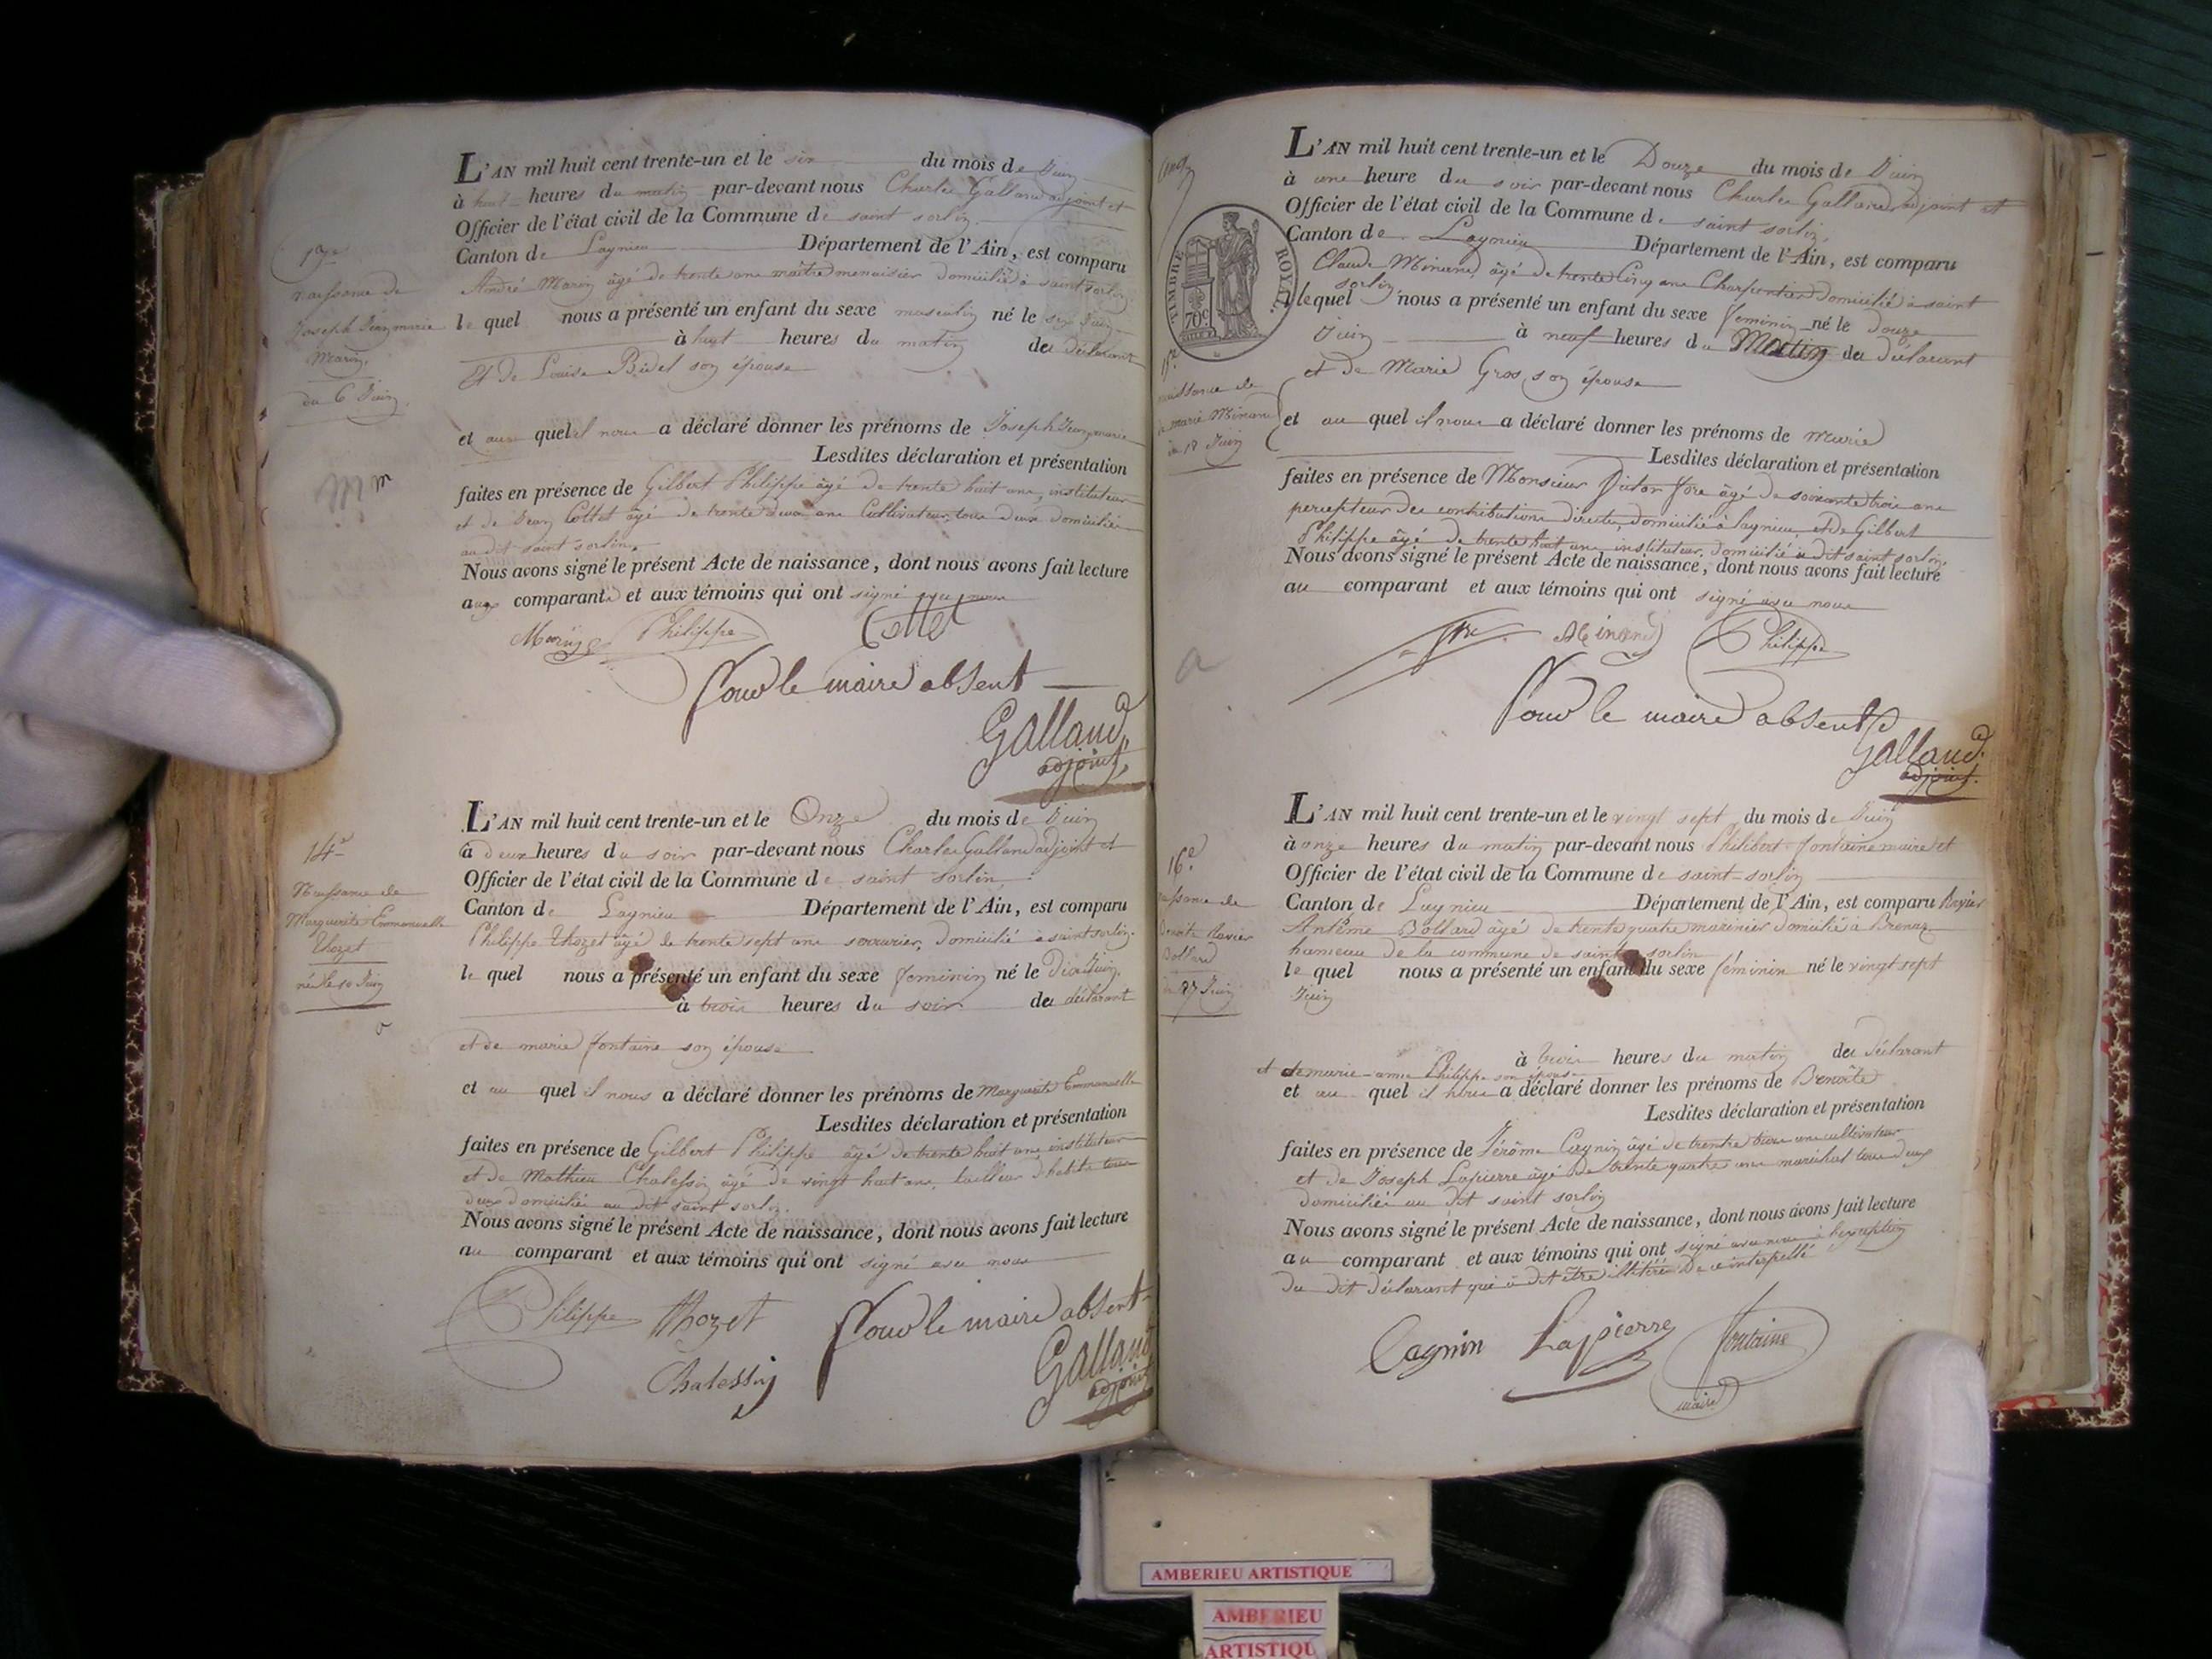 L'AN mil huit cent trente-un et le six du mois de Juin
à huit heures du matin par-devant nous Charles Galland adjoint et
Officier de l'état civil de la Commune de saint sorlin
Canton de Lagnieu Département de l'Ain, est comparu
André Marin âgé de trente ans maître menuisier domicilié à saint sorlin
le quel nous a présenté un enfant du sexe masculin né le six Juin
à huit heures du matin de déclarant
Et de Louise Bidel son épouse
et au quel il nous a déclaré donner les prénoms de Joseph Jean marie
Lesdites déclaration et présentation
faites en présence de Gilbert Philippe âgé de trente huit ans, instituteur
et de Jean Cottet âgé de trente deux ans Cultivateur, tous deux domiciliés
au dit saint sorlin.
Nous avons signé le présent Acte de naissance, dont nous avons fait lecture
aux comparants et aux témoins qui ont signé avec nous
Marin Philippe Cottet
Pour le maire absent
Galland
adjoint
naissance de
Joseph Jean marie
Marin
du 6 Juin
L'AN mil huit cent trente-un et le Onze du mois de Juin
à deux heures du soir par-devant nous Charles Galland adjoint et
Officier de l'état civil de la Commune de saint sorlin
Canton de Lagnieu Département de l'Ain, est comparu
Philippe Thozet âgé de trente sept ans serrurier, domicilié à saint sorlin.
le quel nous a présenté un enfant du sexe feminin né le Dix Juin,
à trois heures du soir de déclarant
et de marie fontaine son épouse
et au quel il nous a déclaré donner les prénoms de Marguerite Emmanuelle
Lesdites déclaration et présentation
faites en présence de Gilbert Philippe âgé de trente huit ans, instituteur
et de Mathieu Chalessin âgé de vingt huit ans, tailleur d'habits tous
deux domiciliés au dit saint sorlin.
Nous avons signé le présent Acte de naissance, dont nous avons fait lecture
au comparant et aux témoins qui ont signé avec nous
Philippe Thozet Pour le maire absent
Chalessin Galland
adjoint
14e
Naissance de
Marguerite Emmanuelle
Thozet
née le 10 Juin
L'AN mil huit cent trente-un et le Douze du mois de Juin
à une heure du soir par-devant nous Charles Galland adjoint et
Officier de l'état civil de la Commune de saint sorlin,
Canton de Lagnieu Département de l'Ain, est comparu
Claude Minand, âgé de trente Cinq ans Charpentier domicilié à saint
sorlin,
lequel nous a présenté un enfant du sexe feminin né le douze
Juin à neuf heures du Matin de déclarant
et de Marie Gros son épouse
et au quel il nous a déclaré donner les prénoms de marie
Lesdites déclaration et présentation
faites en présence de Monsieur âgé de soixante trois ans
percepteur des contributions directes, domicilié à Lagnieu, et de Gilbert
Philippe âgé de trente huit ans instituteur, domicilié à dit saint sorlin.
Nous avons signé le présent Acte de naissance, dont nous avons fait lecture
au comparant et aux témoins qui ont signé avec nous
Minand Philippe
Pour le maire absent
Galland
adjoint.
TIMBRE ROYAL.
70c
15e
naissance de
marie Minand
L'AN mil huit cent trente-un et le vingt sept du mois de Juin
à onze heures du matin par-devant nous Philibert fontaine maire et
Officier de l'état civil de la Commune de saint-sorlin
Canton de Lagnieu Département de l'Ain, est comparu
Antême Bollard âgé de trente quatre marinier domicilié à Brenaz
hameau de la commune de saint sorlin
le quel nous a présenté un enfant du sexe féminin né le vingt sept
Juin
à trois heures du matin de déclarant
et de marie-anne Philippe son épouse
et au quel il nous a déclaré donner les prénoms de Benoîte
Lesdites déclaration et présentation
faites en présence de Jérôme Cagnin âgé de trente trois ans cultivateur
et de Joseph Lapierre âgé de trente quatre ans maréchal tous deux
domiciliés au dit saint sorlin
Nous avons signé le présent Acte de naissance, dont nous avons fait lecture
au comparant et aux témoins qui ont signé avec nous à l'exception
du dit déclarant qui a dit être illitéré De ce interpellé
Cagnin Lapierre fontaine
maire
16e
naissance de
Benoite
Bollard
27 Juin
AMBERIEU ARTISTIQUE
AMBERIEU
ARTISTIQU